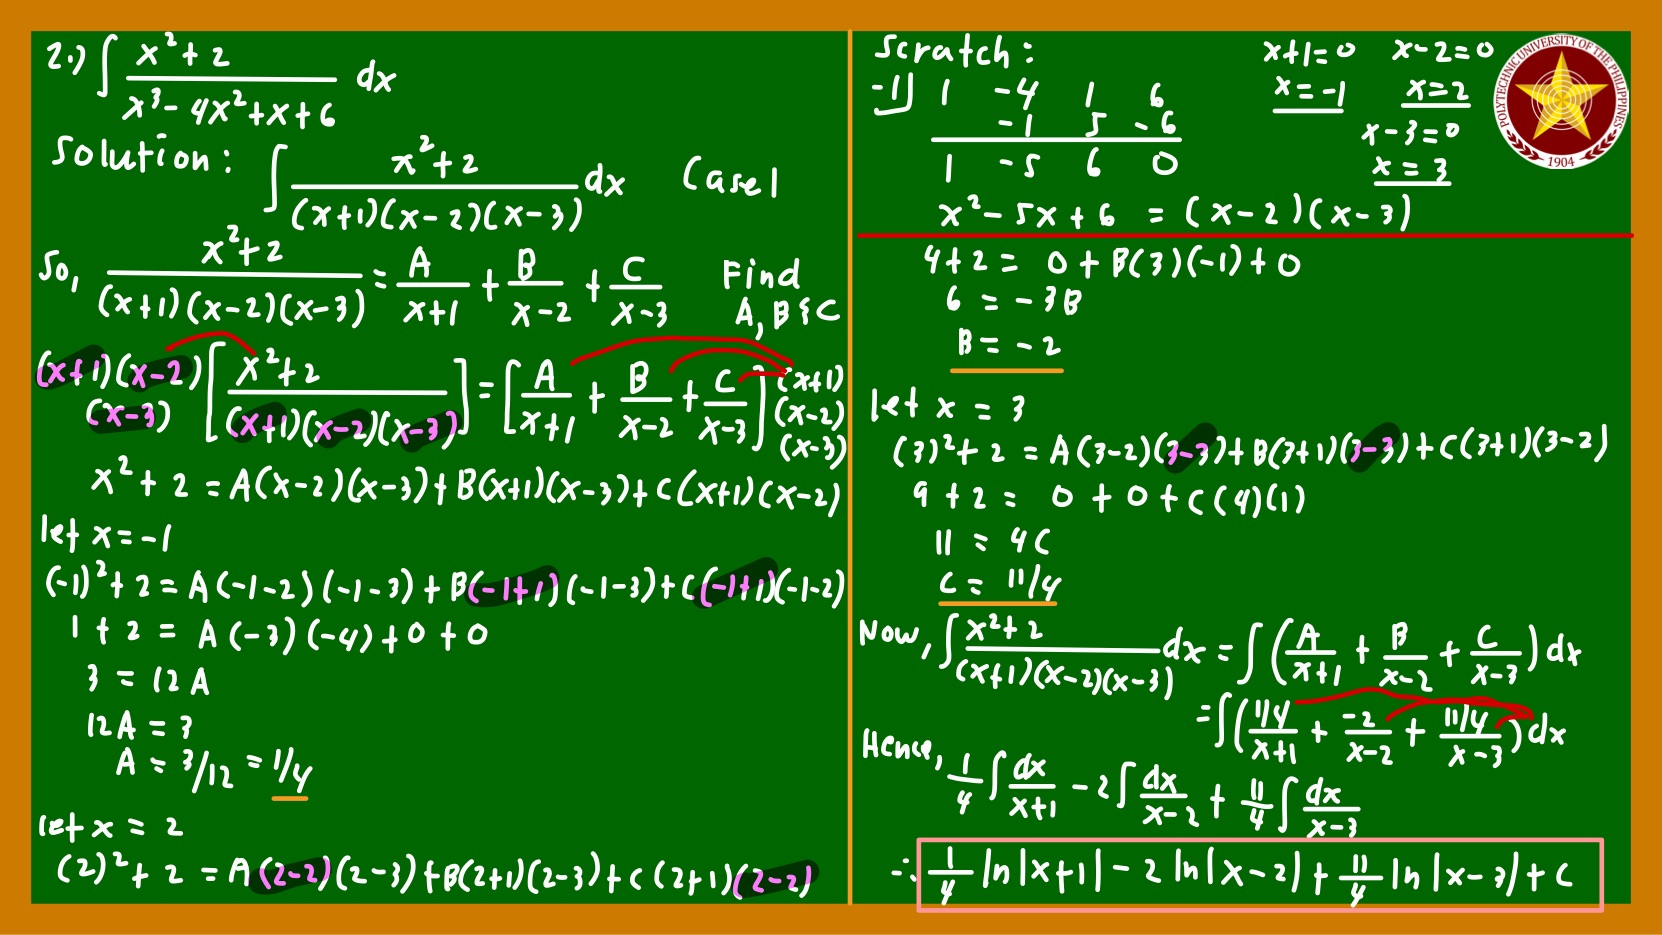 2.) ∫ (x² + 2)/(x³ - 4x² + x + 6) dx
Solution: ∫ (x² + 2)/((x+1)(x-2)(x-3)) dx Case 1
So, (x² + 2)/((x+1)(x-2)(x-3)) = A/(x+1) + B/(x-2) + C/(x-3) Find A, B & C
(x+1)(x-2)(x-3) [(x² + 2)/((x+1)(x-2)(x-3))] = [A/(x+1) + B/(x-2) + C/(x-3)] (x+1)(x-2)(x-3)
x² + 2 = A(x-2)(x-3) + B(x+1)(x-3) + C(x+1)(x-2)
let x = -1
(-1)² + 2 = A(-1-2)(-1-3) + B(-1+1)(-1-3) + C(-1+1)(-1-2)
1 + 2 = A(-3)(-4) + 0 + 0
3 = 12A
12A = 3
A = 3/12 = 1/4
let x = 2
(2)² + 2 = A(2-2)(2-3) + B(2+1)(2-3) + C(2+1)(2-2)
Scratch: x+1=0 x-2=0
-1] 1 -4 1 6 x=-1 x=2
-1 5 -6 x-3=0
1 -5 6 0 x=3
x² - 5x + 6 = (x-2)(x-3)
POLYTECHNIC UNIVERSITY OF THE PHILIPPINES
1904
4 + 2 = 0 + B(3)(-1) + 0
6 = -3B
B = -2
let x = 3
(3)² + 2 = A(3-2)(3-3) + B(3+1)(3-3) + C(3+1)(3-2)
9 + 2 = 0 + 0 + C(4)(1)
11 = 4C
C = 11/4
Now, ∫ (x² + 2)/((x+1)(x-2)(x-3)) dx = ∫ (A/(x+1) + B/(x-2) + C/(x-3)) dx
= ∫ ((1/4)/(x+1) + -2/(x-2) + (11/4)/(x-3)) dx
Hence, 1/4 ∫ dx/(x+1) - 2 ∫ dx/(x-2) + 11/4 ∫ dx/(x-3)
∴ 1/4 ln|x+1| - 2 ln|x-2| + 11/4 ln|x-3| + C